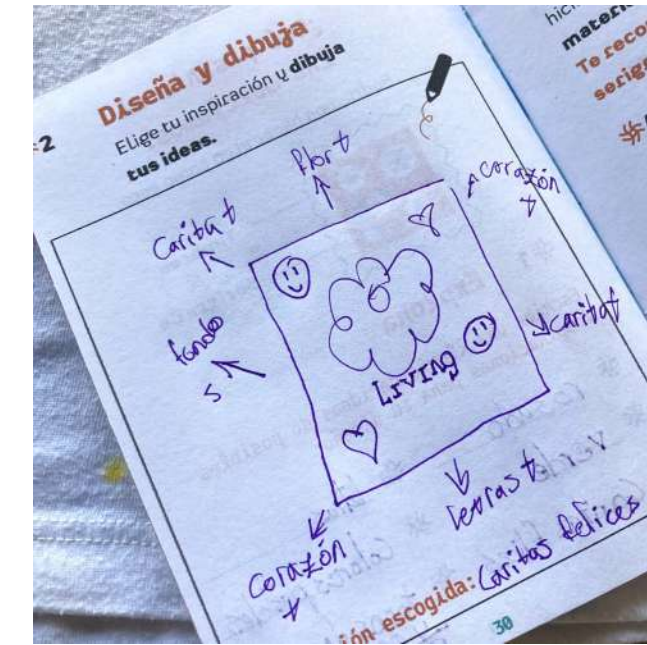 :2
Diseña y dibuja
Elige tu inspiración y dibuja
tus ideas.
flor t
Carita t
corazón
t
fondo
s
carita t
LIVING
letras t
corazón
t
ión escogida: Caritas felices
30
materi
Te reco
serigr